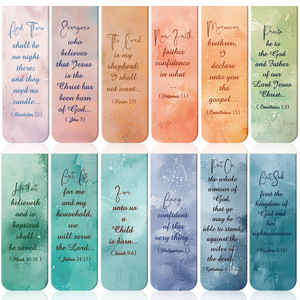 And There
shall be
no night
there;
and they
need no
candle...
(Revelation 22)
Everyone
who
believes
that Jesus
is the
Christ has
been born
of God...
(John 5)
The Lord
is my
shepherd;
I shall
not want...
(Psalm 23)
Now Faith
faith is
confidence
in what
...
Moreover
brethren,
I
declare
unto you
the
gospel...
Praise
be to
the God
and Father
of our
Lord Jesus
Christ...
that
believeth
and is
baptized
shall be
saved...
(Mark 16:16)
But As
for me
and my
household,
we
will serve
the Lord...
(Joshua 24:15)
For
unto us
a
Child
is born...
(Isaiah 9:6)
Being
confident
of this
very
thing...
Put On
the whole
armour of
God, that
ye may
be able
to stand
against
the
wiles of
the devil...
But Seek
first the
kingdom of
God and
his
righteousness